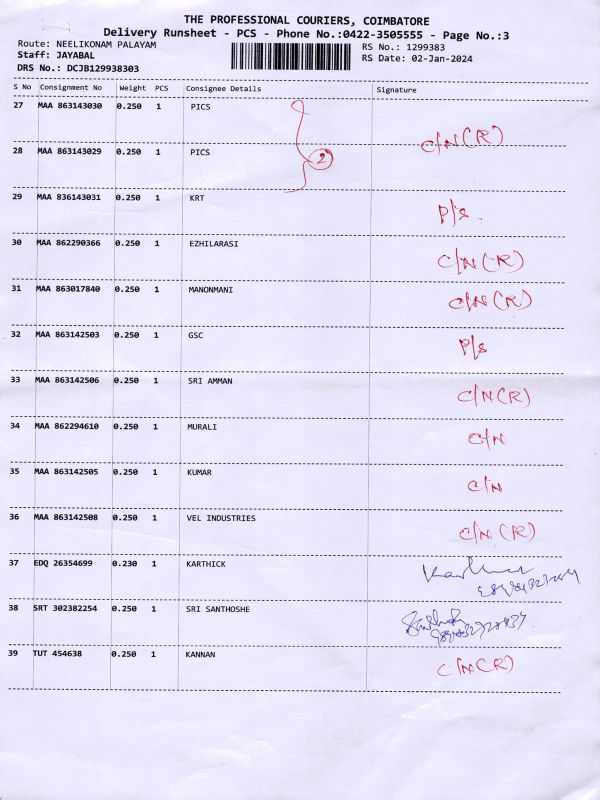 THE PROFESSIONAL COURIERS, COIMBATORE
Delivery Runsheet - PCS - Phone No.:0422-3505555 - Page No.:3
Route: NEELIKONAM PALAYAM
Staff: JAYABAL
DRS No.: DCJB129938303
RS No.: 1299383
RS Date: 02-Jan-2024
S No Consignment No Weight PCS Consignee Details Signature
27 MAA 863143030 0.250 1 PICS
C/N(R)
2
28 MAA 863143029 0.250 1 PICS
29 MAA 836143031 0.250 1 KRT
P/S.
30 MAA 862290366 0.250 1 EZHILARASI
C/N(R)
31 MAA 863017840 0.250 1 MANONMANI
C/N(R)
32 MAA 863142503 0.250 1 GSC
P/S
33 MAA 863142506 0.250 1 SRI AMMAN
C/N(R)
34 MAA 862294610 0.250 1 MURALI
C/N
35 MAA 863142505 0.250 1 KUMAR
C/N
36 MAA 863142508 0.250 1 VEL INDUSTRIES
C/N(R)
37 EDQ 26354699 0.230 1 KARTHICK
38 SRT 302382254 0.250 1 SRI SANTHOSHE
39 TUT 454638 0.250 1 KANNAN
C/N(R)